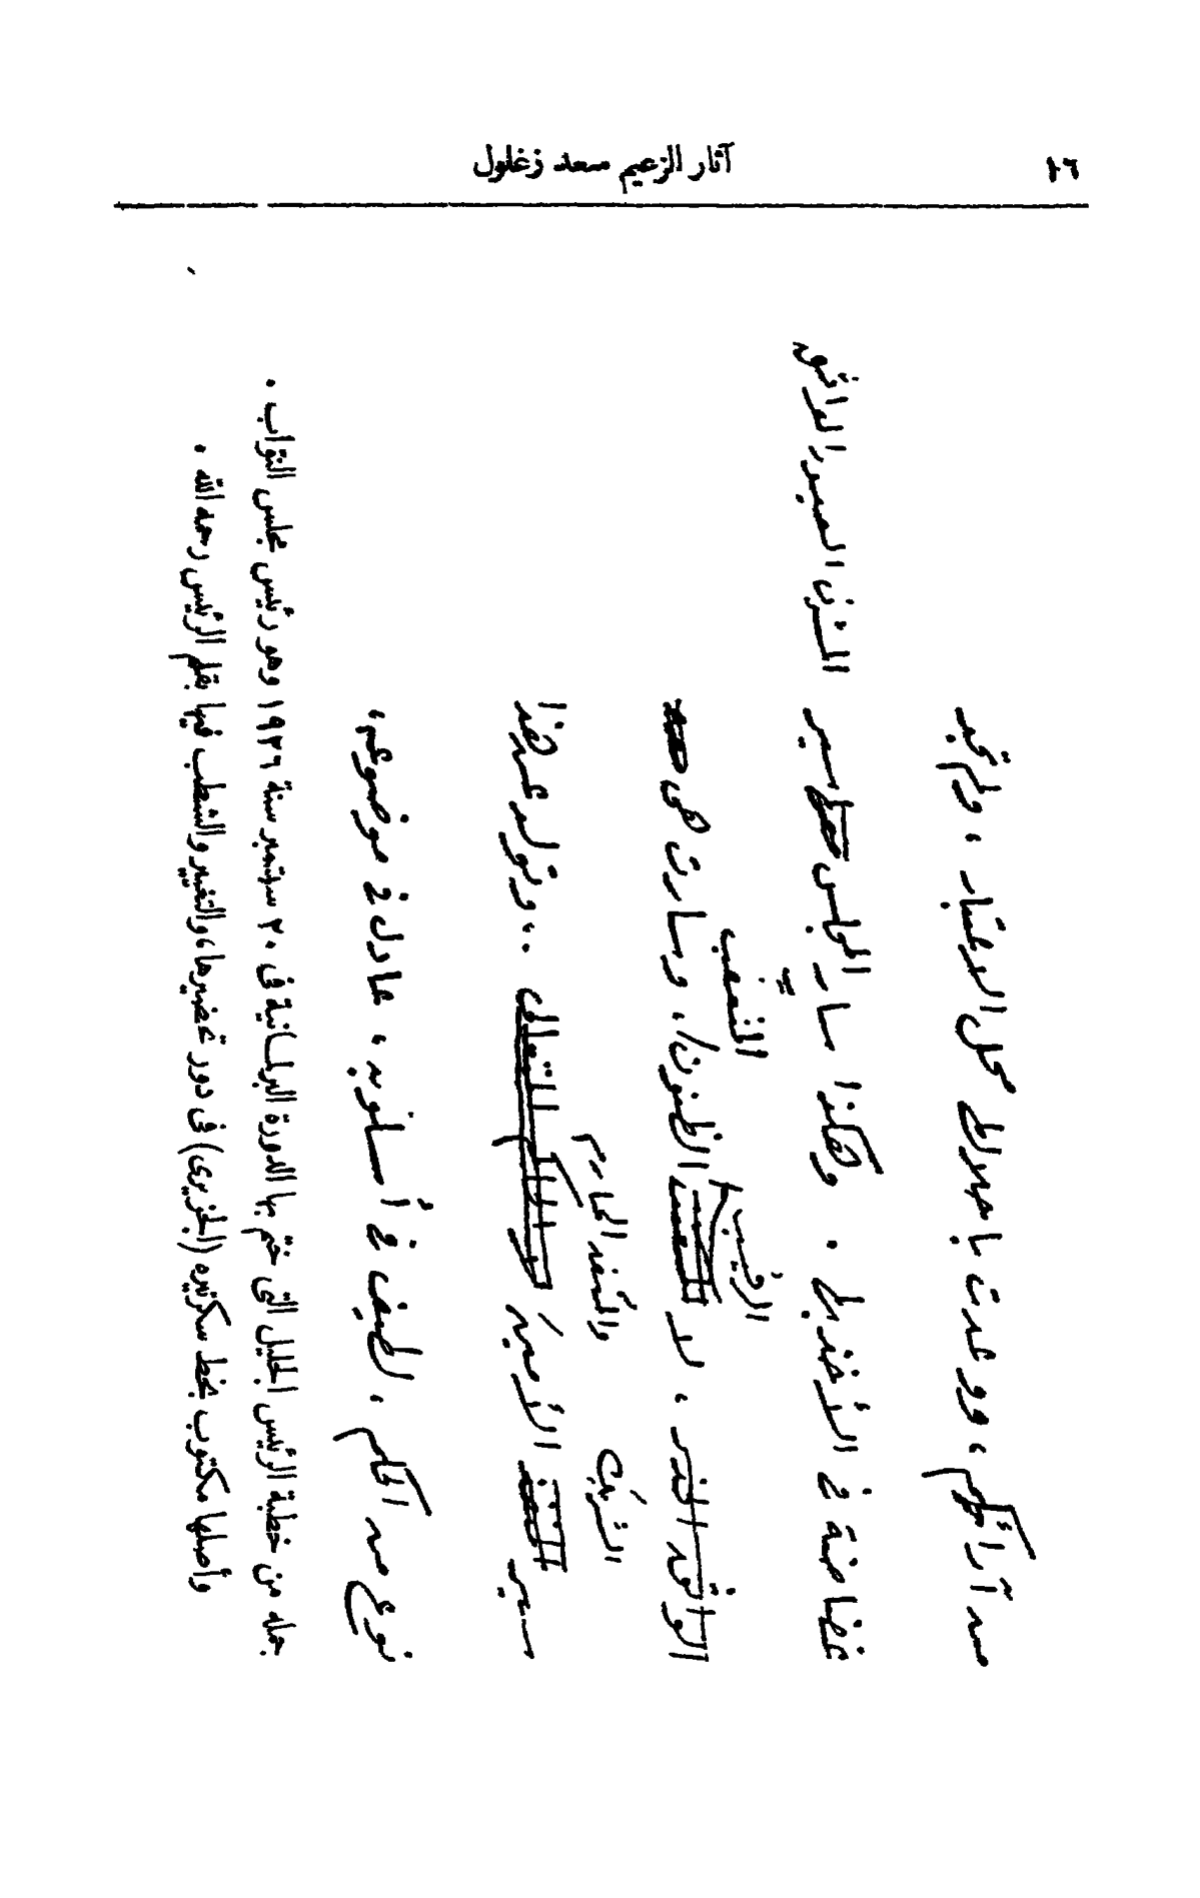 ١٦
آثار الزعيم سعد زغلول
من آرائكم، ووعدت بإحلالها محل الاعتبار، ولم تجد
غضاضة فى الأخذ بها. وهكذا سار المجلس سير
المتزن البصير الواثق
المتعصب
الرقيب
الواثق الحذر، لا الظنون، وسارت هى
والمنفذ الحازم
الشريك
سير الأمين .. وتولد عن هذا
نوع من الحكم، لطيف فى أسلوبه، عادل فى موضوعه،
جملة من خطبة الرئيس الجليل التى ختم بها الدورة البرلمانية فى ٢٠ سبتمبر سنة ١٩٢٦ وهو رئيس مجلس النواب.
وأصلها مكتوب بخط سكرتيره (الجزيرى) فى دور تحضيرها، والتغيير والشطب فيها بقلم الرئيس رحمه الله.